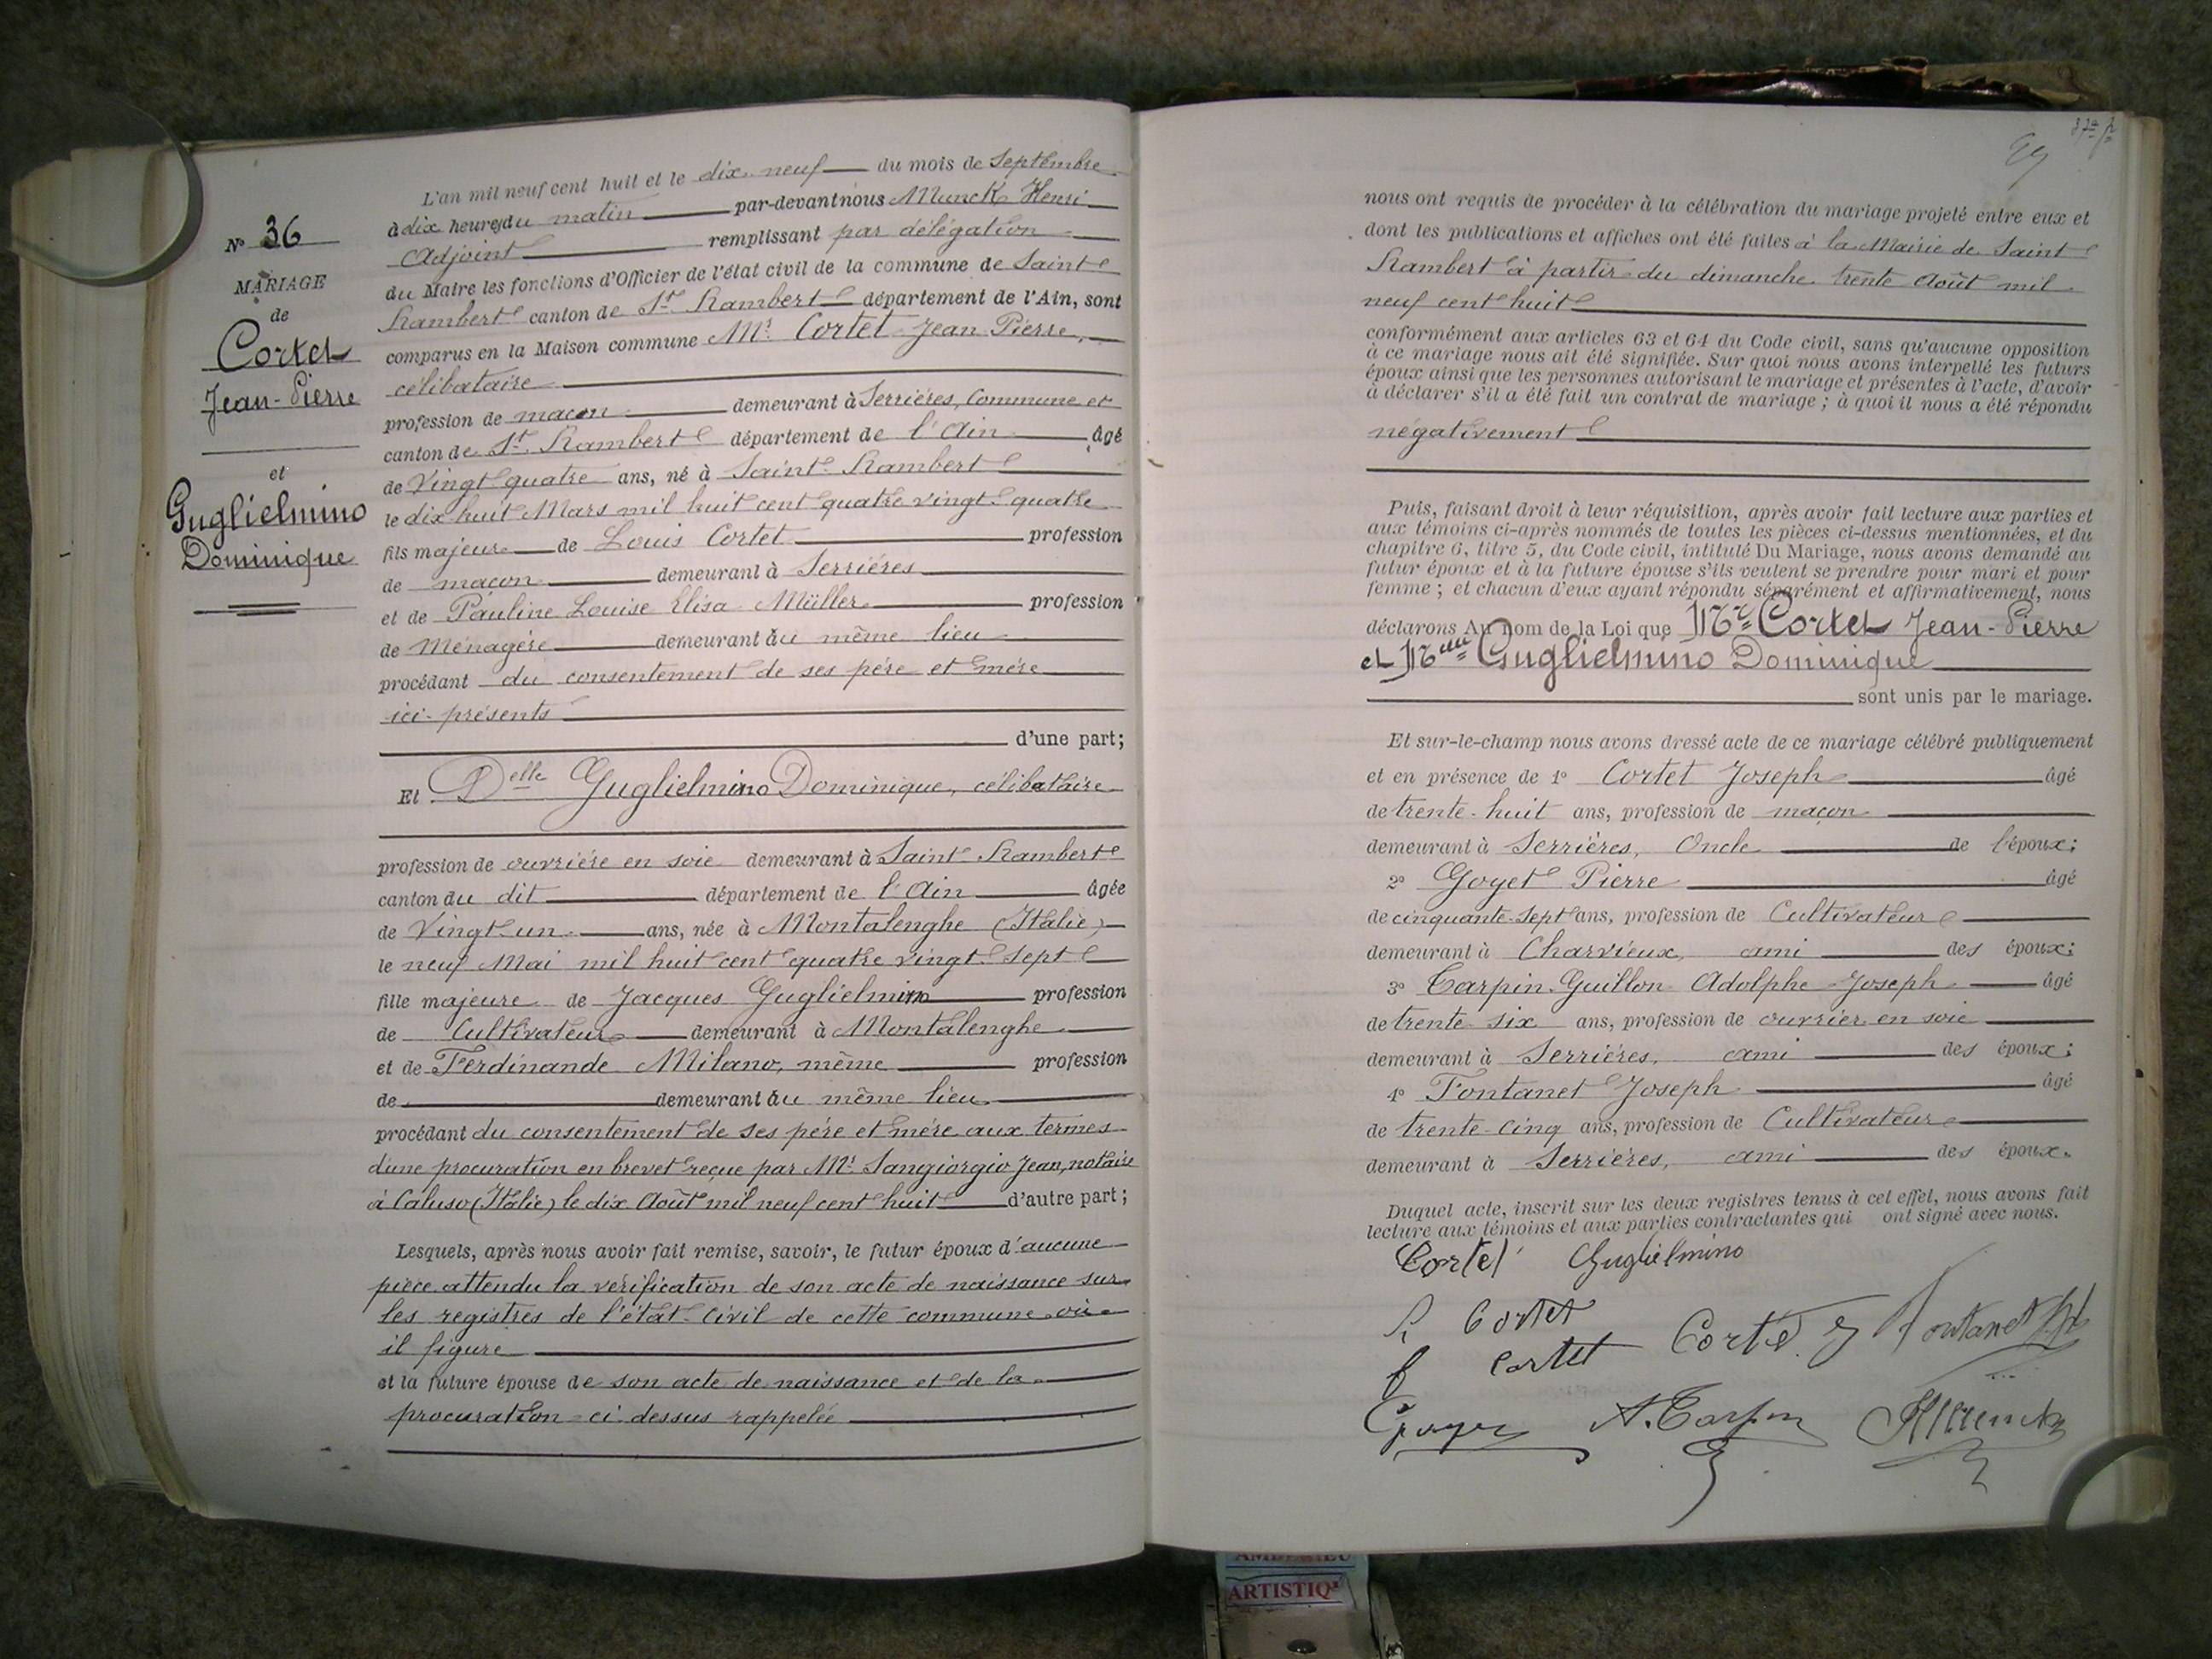 N° 36
MARIAGE
de
Cortet
Jean-Pierre
et
Guglielmino
Dominique
L'an mil neuf cent huit et le dix-neuf du mois de Septembre
à dix heures du matin par-devant nous Munck Henri
Adjoint remplissant par délégation
du Maire les fonctions d'Officier de l'état civil de la commune de Saint
Rambert canton de St. Rambert département de l'Ain, sont
comparus en la Maison commune Mr. Cortet Jean Pierre,
célibataire
profession de maçon demeurant à Serrières, Commune et
canton de St. Rambert département de l'Ain âgé
de Vingt quatre ans, né à Saint-Rambert
le dix huit Mars mil huit cent quatre vingt-quatre
fils majeur de Louis Cortet profession
de maçon demeurant à Serrières
et de Pauline Louise Elisa Müller profession
de Ménagère demeurant au même lieu
procédant du consentement de ses père et mère
ici présents
d'une part;
Et Delle Guglielmino Dominique, célibataire
profession de ouvrière en soie demeurant à Saint-Rambert
canton du dit département de l'Ain âgée
de Vingt-un ans, née à Montalenghe (Italie)
le neuf Mai mil huit cent quatre vingt-sept
fille majeure de Jacques Guglielmino profession
de Cultivateur demeurant à Montalenghe
et de Ferdinande Milano, même profession
de demeurant au même lieu
procédant du consentement de ses père et mère aux termes
d'une procuration en brevet reçue par Mr. Sangiorgio Jean, notaire
à Caluso (Italie) le dix Août mil neuf cent huit d'autre part;
Lesquels, après nous avoir fait remise, savoir, le futur époux d'aucune
pièce attendu la vérification de son acte de naissance sur
les registres de l'état-civil de cette commune où
il figure
et la future épouse de son acte de naissance et de la
procuration ci-dessus rappelée
nous ont requis de procéder à la célébration du mariage projeté entre eux et
dont les publications et affiches ont été faites à la Mairie de Saint
Rambert à partir du dimanche trente Août mil
neuf cent huit
conformément aux articles 63 et 64 du Code civil, sans qu'aucune opposition
à ce mariage nous ait été signifiée. Sur quoi nous avons interpellé les futurs
époux ainsi que les personnes autorisant le mariage et présentes à l'acte, d'avoir
à déclarer s'il a été fait un contrat de mariage; à quoi il nous a été répondu
négativement
Puis, faisant droit à leur réquisition, après avoir fait lecture aux parties et
aux témoins ci-après nommés de toutes les pièces ci-dessus mentionnées, et du
chapitre 6, titre 5, du Code civil, intitulé Du Mariage, nous avons demandé au
futur époux et à la future épouse s'ils veulent se prendre pour mari et pour
femme; et chacun d'eux ayant répondu séparément et affirmativement, nous
déclarons Au nom de la Loi que Mr Cortet Jean-Pierre
et Melle Guglielmino Dominique
sont unis par le mariage.
Et sur-le-champ nous avons dressé acte de ce mariage célébré publiquement
et en présence de 1° Cortet Joseph âgé
de trente-huit ans, profession de maçon
demeurant à Serrières, Oncle de l'époux;
2° Goyet Pierre âgé
de cinquante-sept ans, profession de Cultivateur
demeurant à Charvieux, ami des époux;
3° Carpin-Guillon Adolphe Joseph âgé
de trente-six ans, profession de ouvrier en soie
demeurant à Serrières, ami des époux;
4° Fontanet Joseph âgé
de trente-cinq ans, profession de Cultivateur
demeurant à Serrières, ami des époux.
Duquel acte, inscrit sur les deux registres tenus à cet effet, nous avons fait
lecture aux témoins et aux parties contractantes qui ont signé avec nous.
Cortet Guglielmino
Cortet
Cortet Fontanet
Cortet
A. Carpin
ARTISTIQ